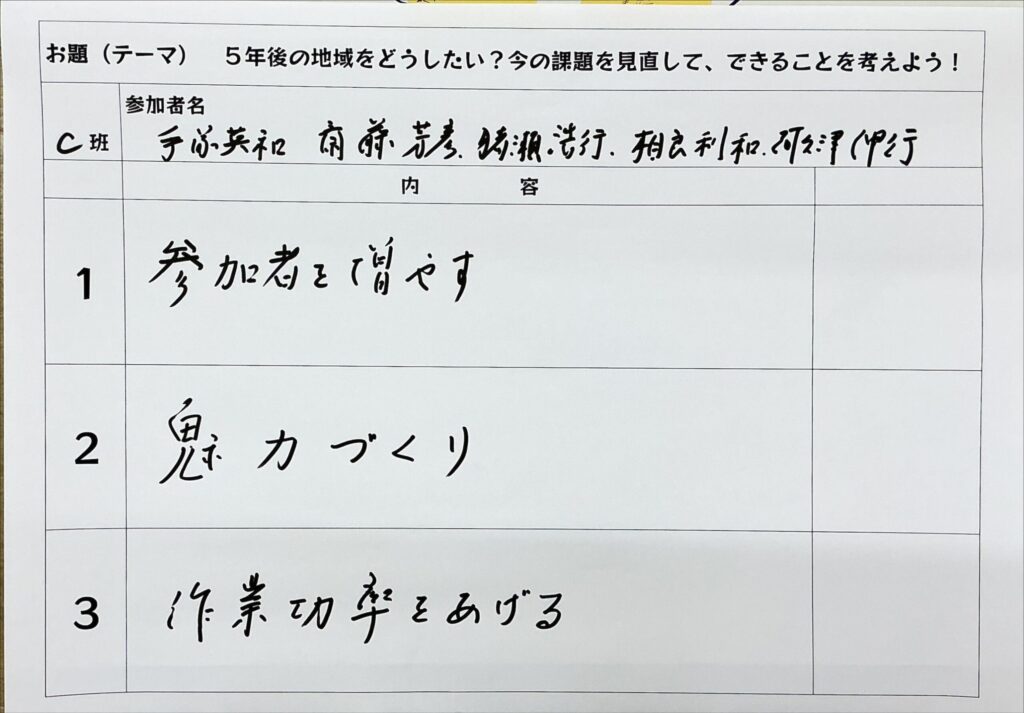 お題（テーマ）　５年後の地域をどうしたい？今の課題を見直して、できることを考えよう！
参加者名
C班
手塚英和　斎藤芳彦、綾瀬浩行、相良利和、阿久津伸行
内　容
1
参加者を増やす
2
魅力づくり
3
作業功率をあげる